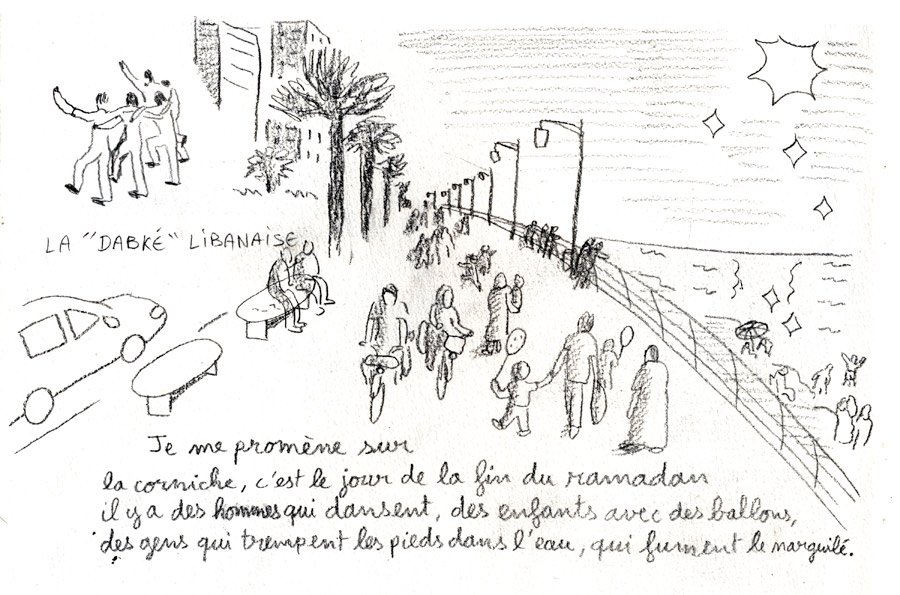 LA "DABKÉ" LIBANAISE
Je me promène sur
la corniche, c'est le jour de la fin du ramadan
il y a des hommes qui dansent, des enfants avec des ballons,
des gens qui trempent les pieds dans l'eau, qui fument le narguilé.